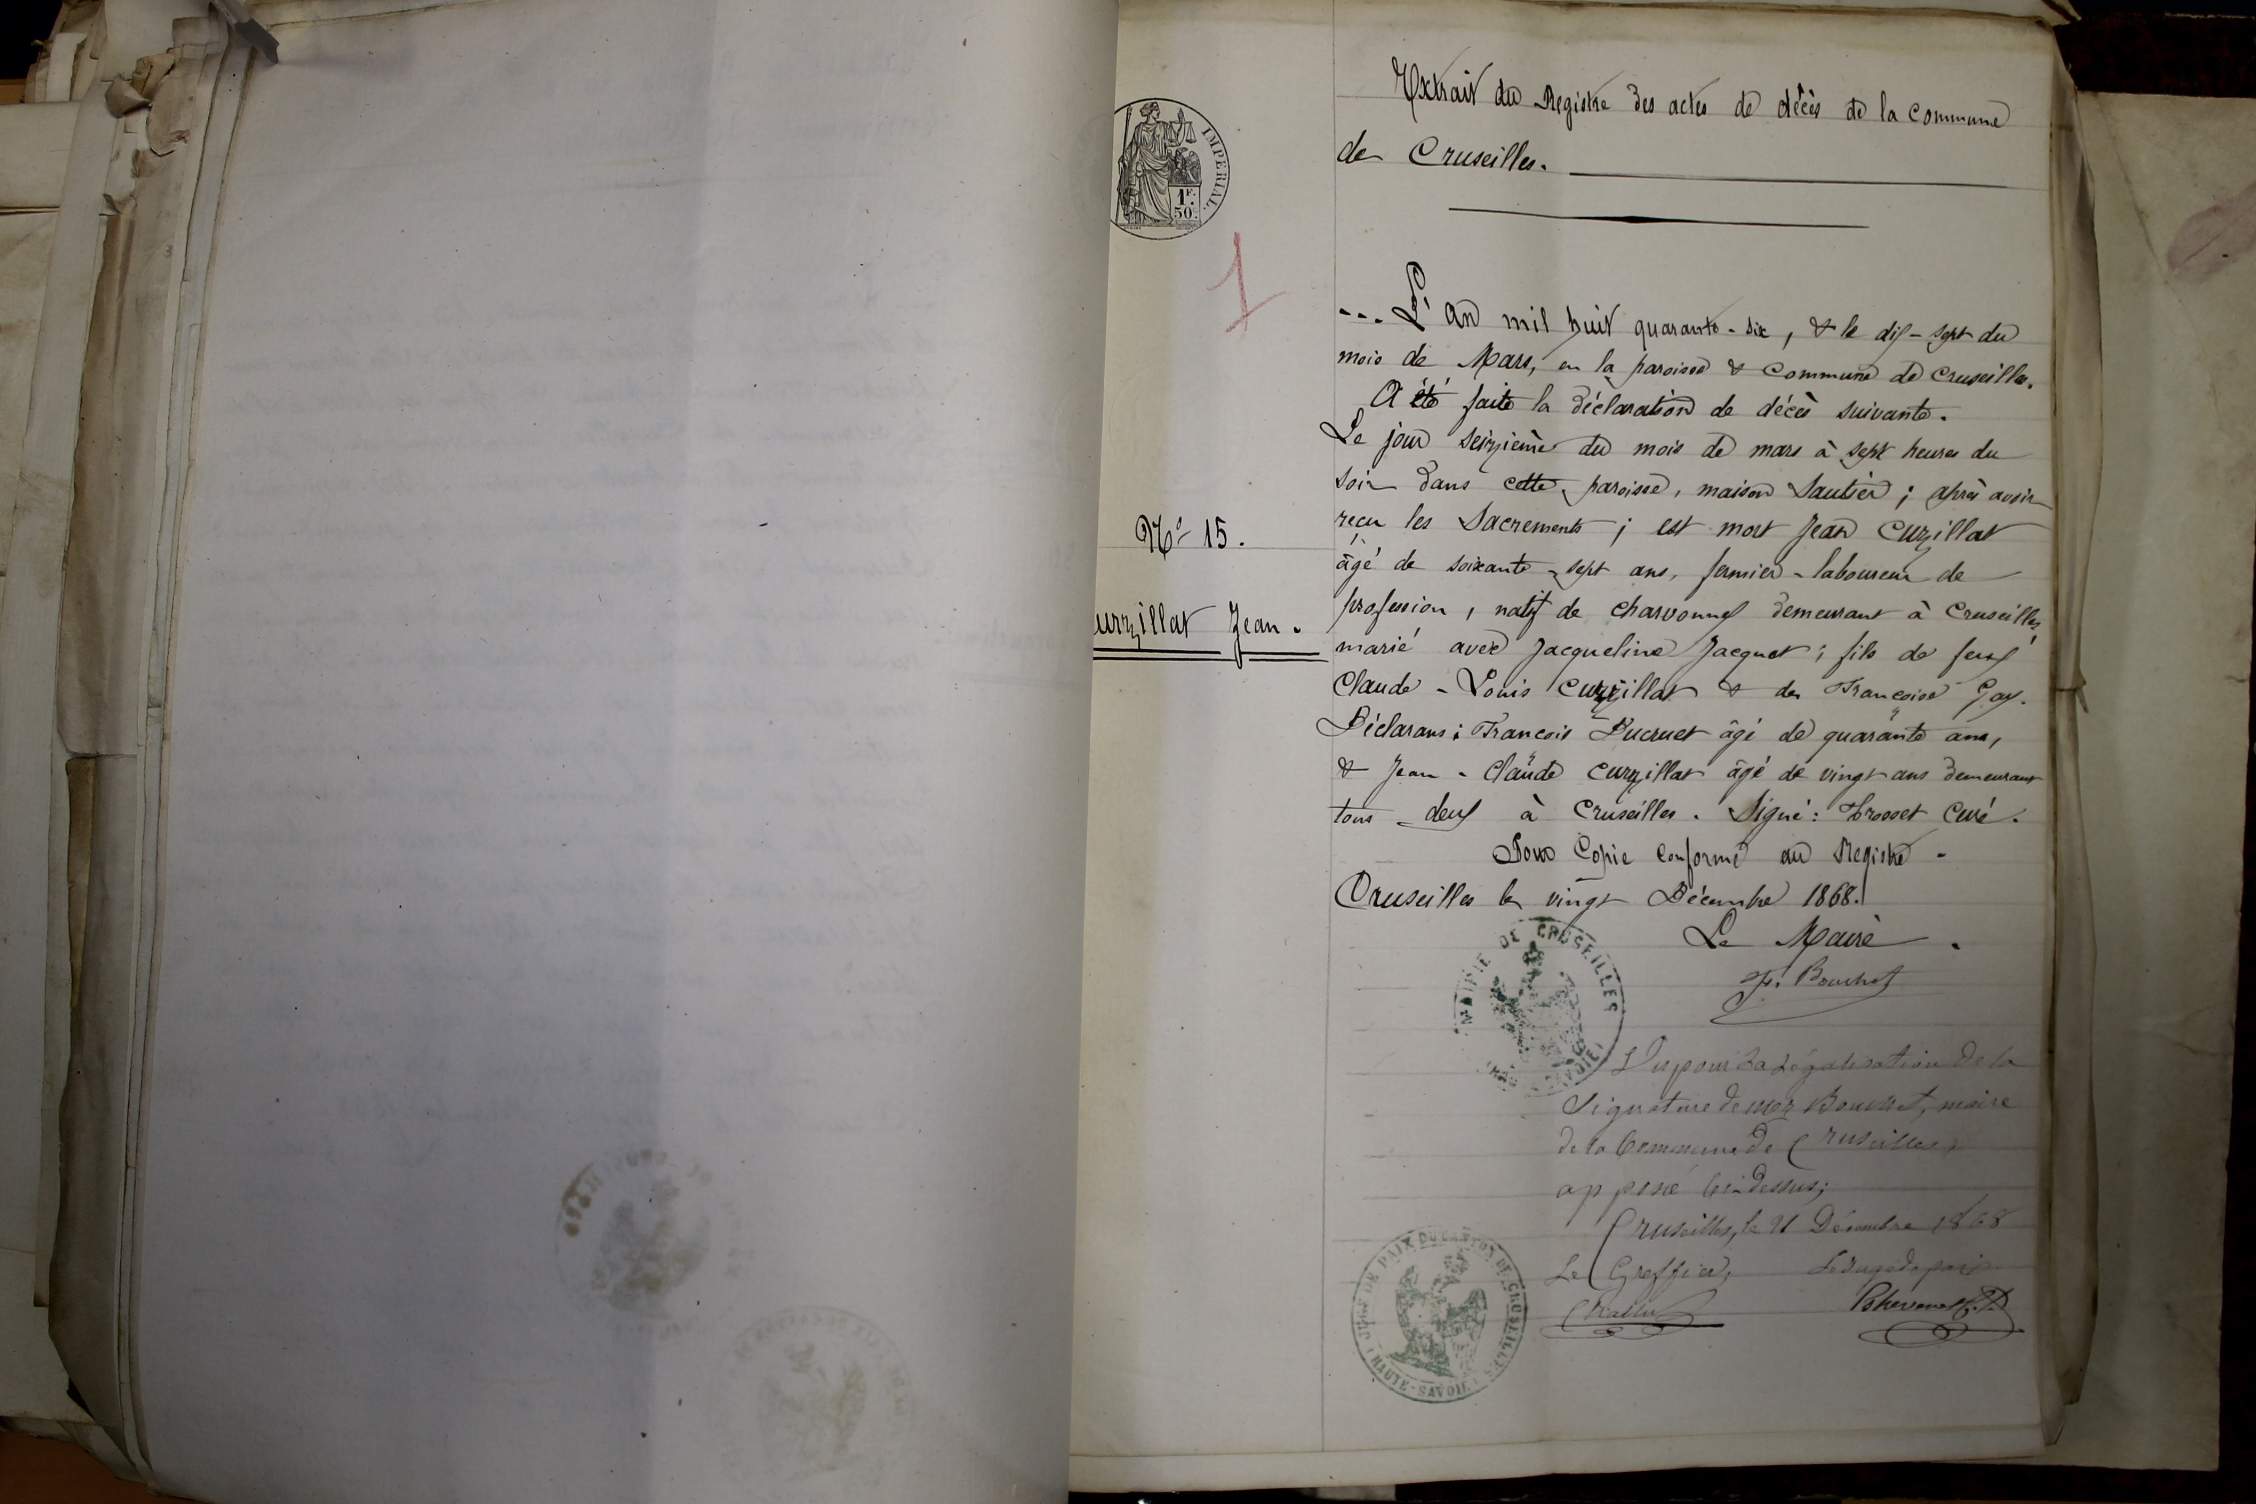 IMPERIAL.
1F.
50c.
1
Extrait du Registre des actes de décès de la Commune
de Cruseilles.
... L'an mil huit quarante-six, & le dix-sept du
mois de Mars, en la paroisse & Commune de Cruseilles.
A été faite la déclaration de décès suivante.
Le jour seizième du mois de mars à sept heures du
soir dans cette paroisse, maison Sautier; après avoir
N° 15.
reçu les Sacrements; est mort Jean Curzillat
âgé de soixante-sept ans, fermier-laboureur de
profession, natif de Charvonnex demeurant à Cruseilles,
urzillat Jean.
marié avec Jacqueline Jacquet; fils de feux
Claude-Louis Curzillat & de Françoise Gay.
Déclarans: François Bucruet âgé de quarante ans,
& Jean-Claude Curzillat âgé de vingt ans demeurant
tous deux à Cruseilles. Signé: Trosset Curé.
Pour Copie Conforme au Registre.
Cruseilles le vingt Décembre 1868.
Le Maire.
F. Bouchet
MAIRIE DE CRUSEILLES
SAVOIE
Vu pour la Légalisation de la
Signature de Bouchet, maire
de la Commune de Cruseilles,
apposé ci-dessus;
Cruseilles, le 21 Décembre 1868
Le Greffier, Le Juge de paix
JUGE DE PAIX DU CANTON DE CRUSEILLES
(HAUTE-SAVOIE)